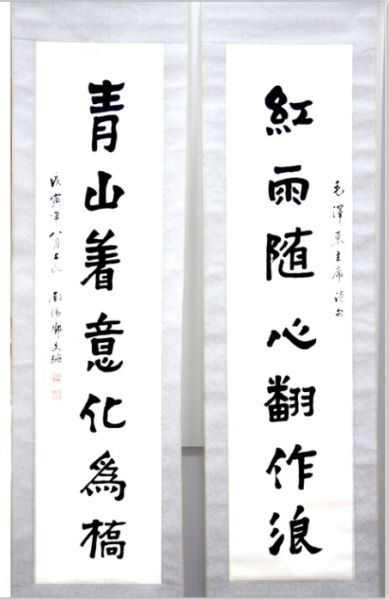 毛澤東主席詩句
紅雨随心翻作浪
青山着意化爲橋
戊寅年八月 南陽鄭